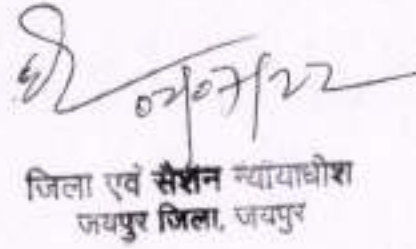 02/07/22
जिला एवं सैशन न्यायाधीश
जयपुर जिला, जयपुर